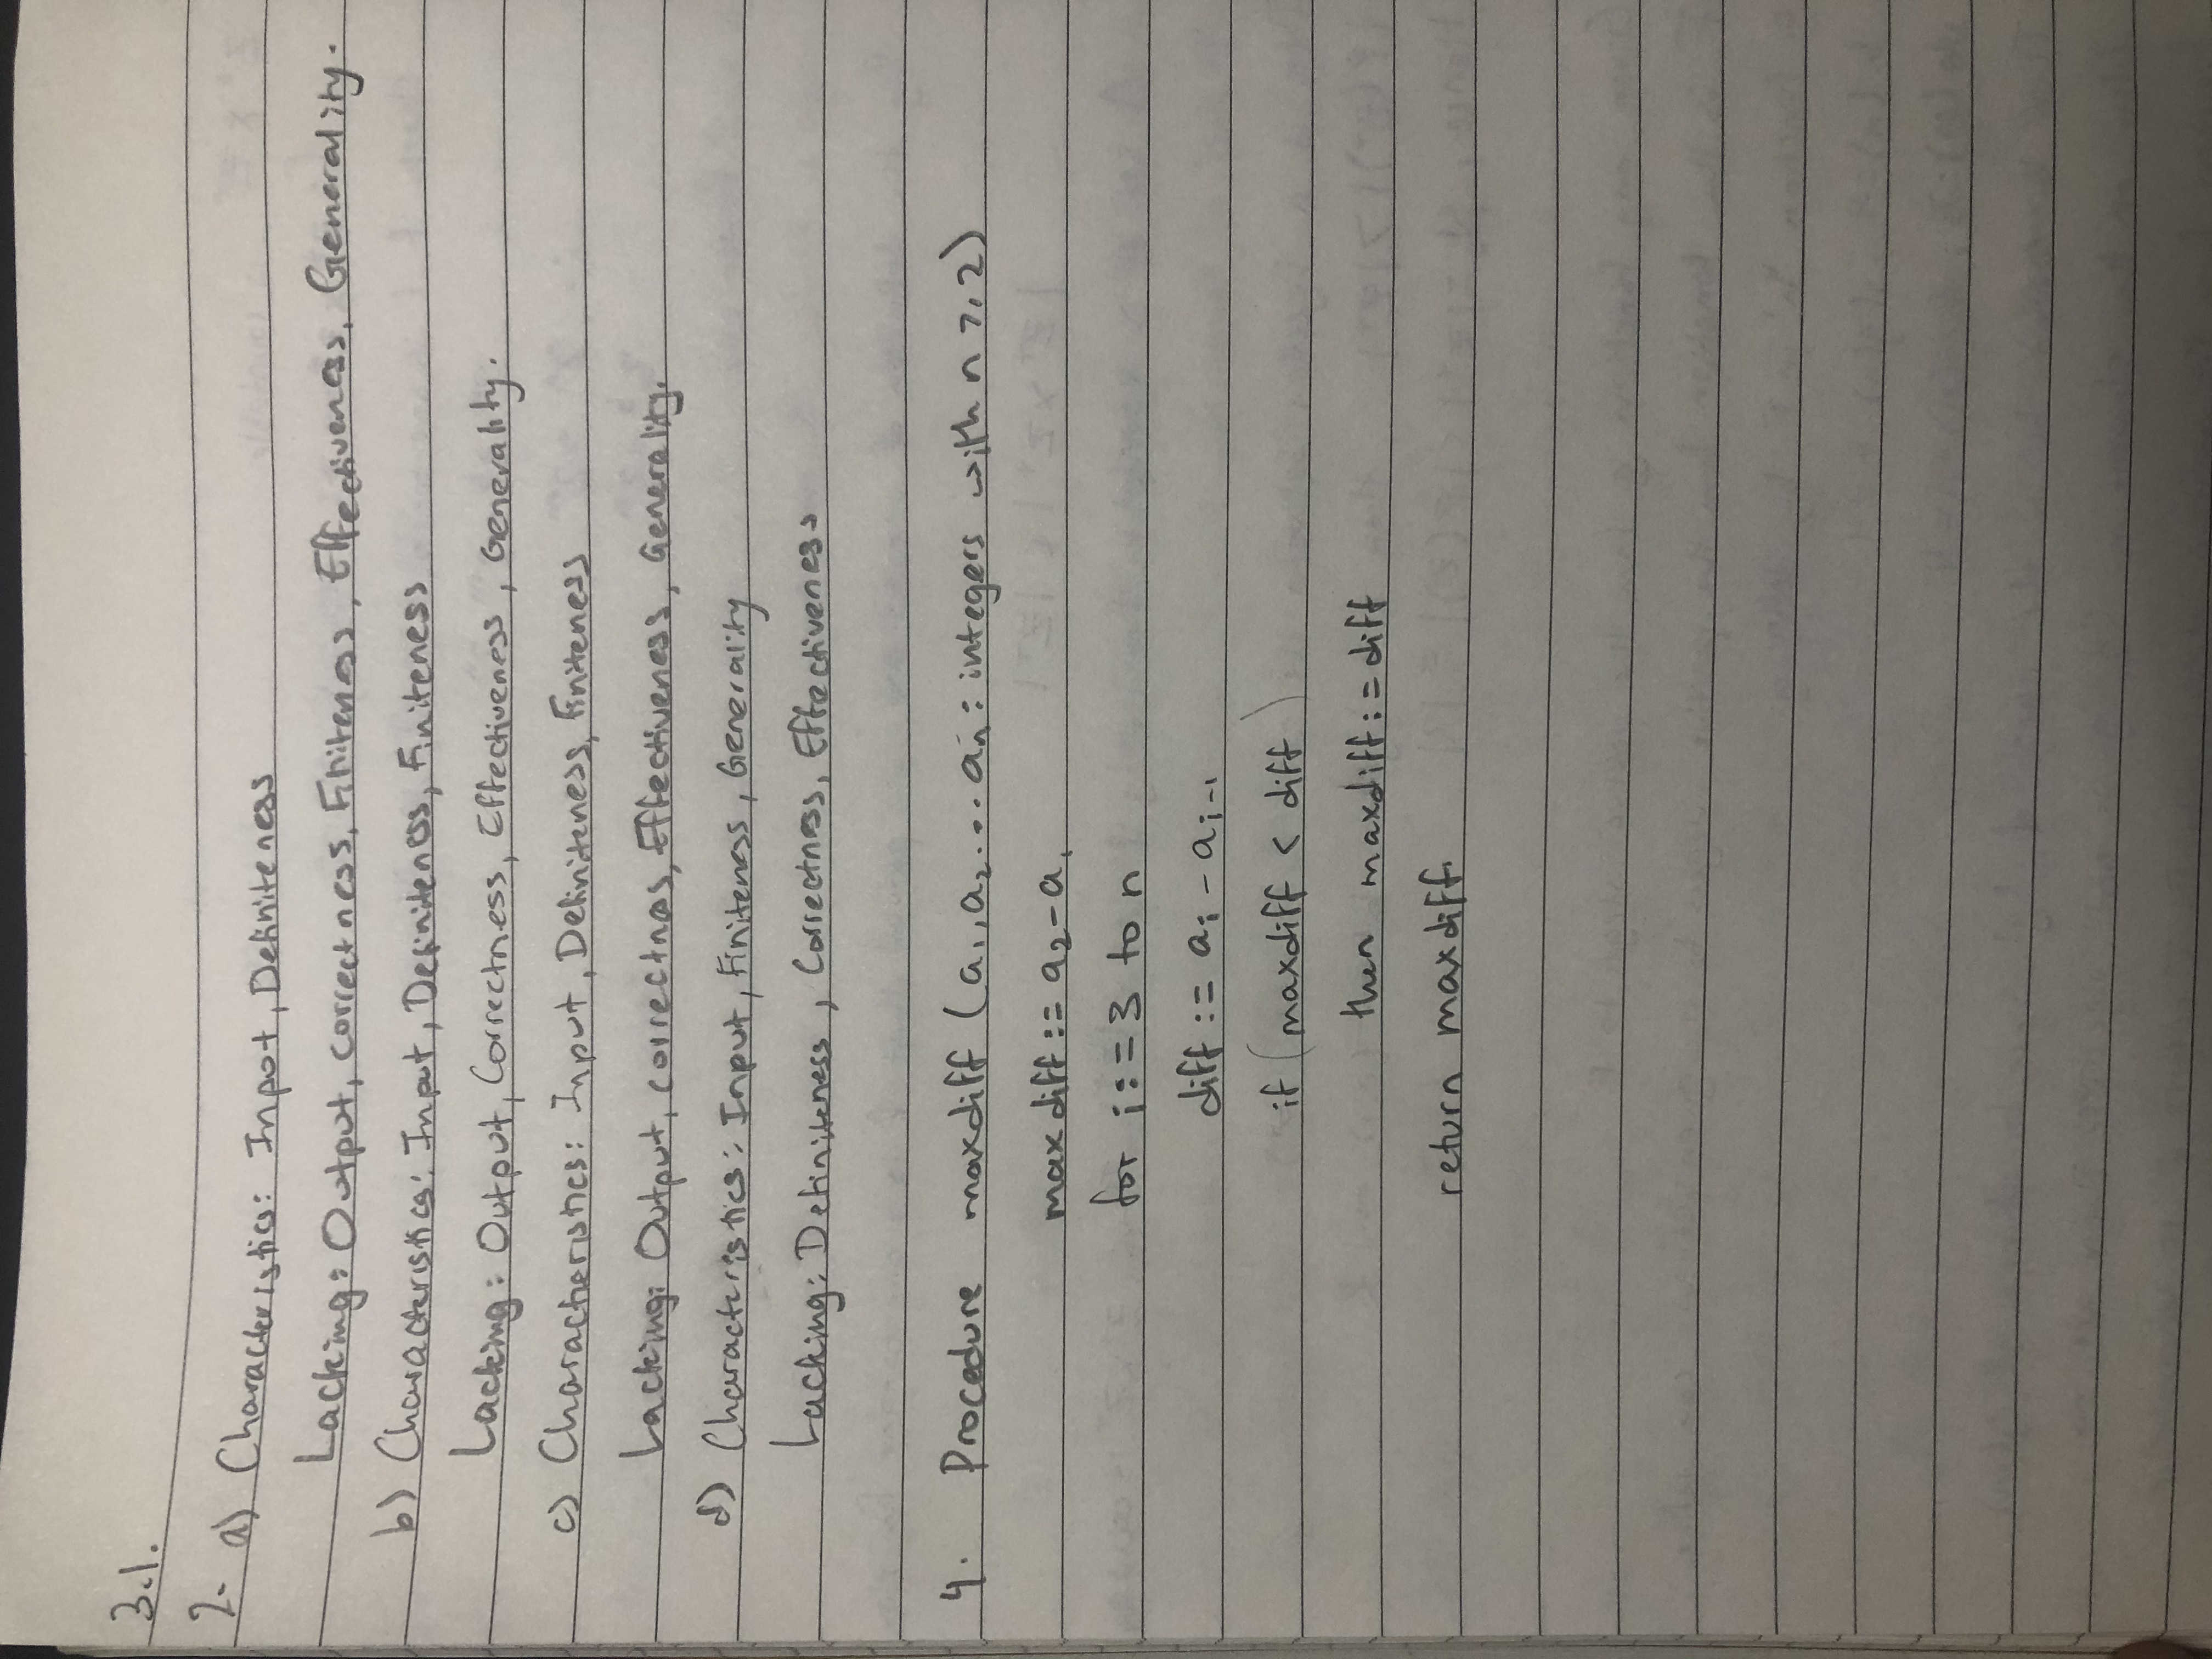 3.1.
2. a) Characteristics: Input, Definiteness
Lacking: Output, correctness, Finiteness, Effectiveness, Generality.
b) Characteristics: Input, Definiteness, Finiteness
Lacking: Output, Correctness, Effectiveness, Generality.
c) Characteristics: Input, Definiteness, Finiteness
Lacking: Output, correctness, Effectiveness, Generality.
d) Characteristics: Input, Finiteness, Generality
Lacking: Definiteness, Correctness, Effectiveness
4. Procedure maxdiff (a₁, a₂... aₙ: integers with n ≥ 2)
maxdiff := a₂ - a₁
for i := 3 to n
diff := aᵢ - aᵢ₋₁
if (maxdiff < diff)
then maxdiff := diff
return maxdiff.